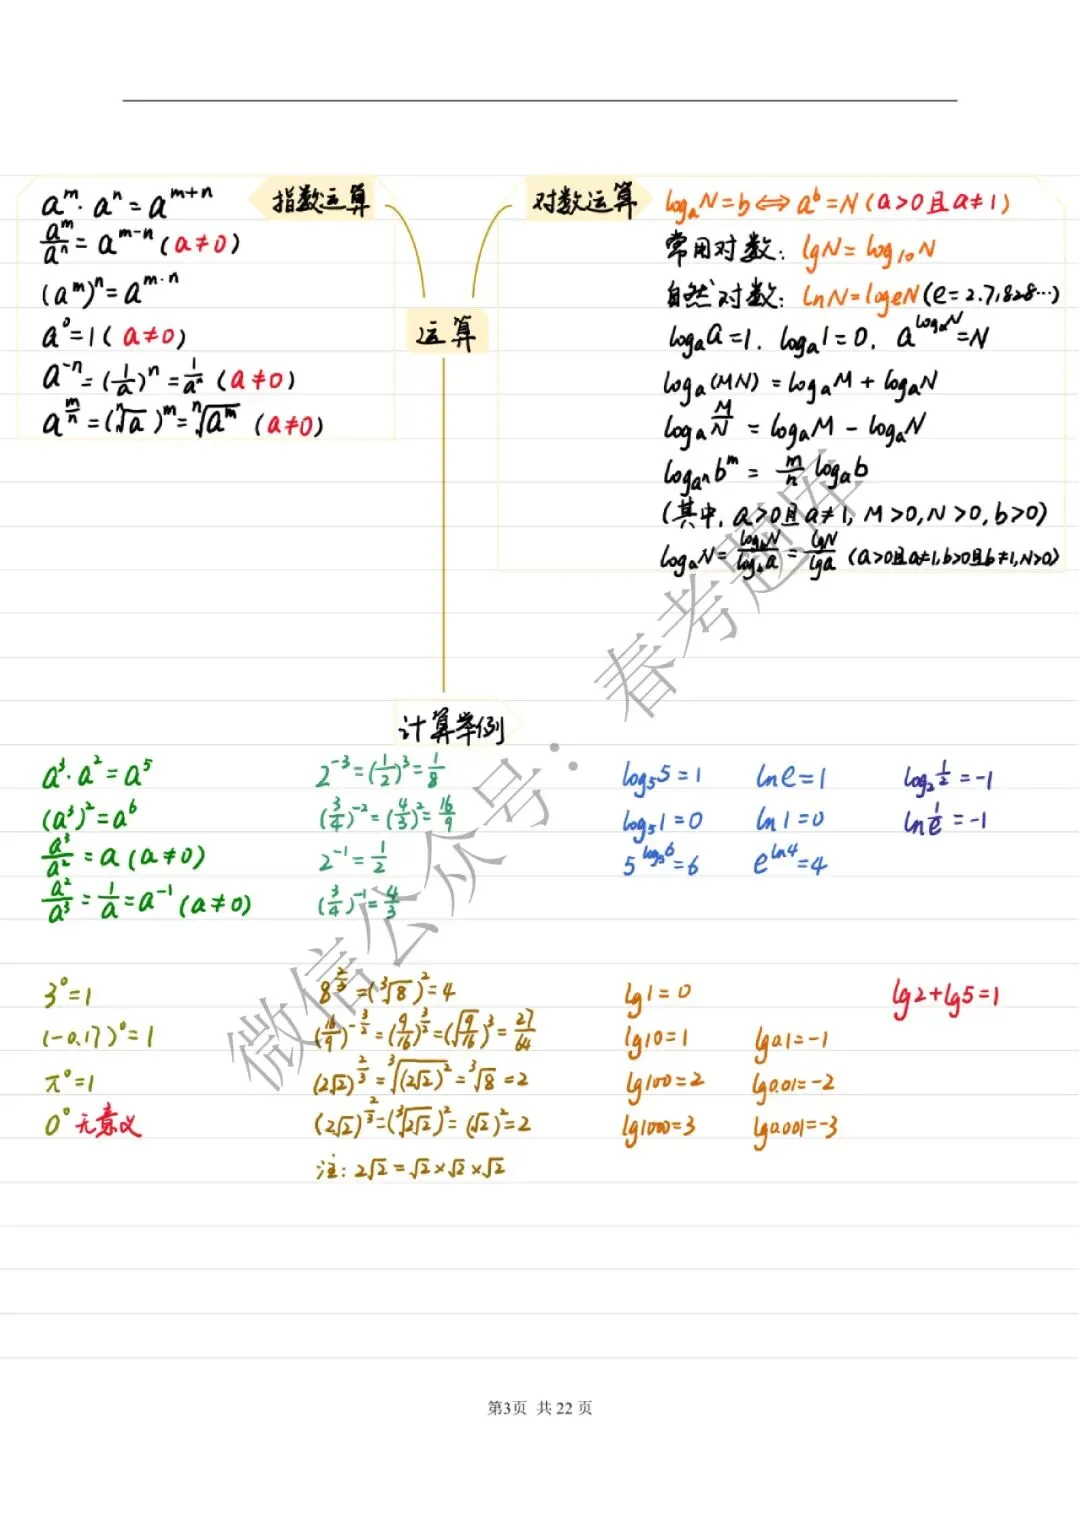 指数运算
a^m · a^n = a^{m+n}
a^m/a^n = a^{m-n} (a≠0)
(a^m)^n = a^{m·n}
a^0 = 1 (a≠0)
a^{-n} = (1/a)^n = 1/a^n (a≠0)
a^{m/n} = (ⁿ√a)^m = ⁿ√a^m (a≠0)
运算
对数运算
log_a N = b ⟺ a^b = N (a>0且a≠1)
常用对数: lgN = log_10 N
自然对数: lnN = log_e N (e=2.71828…)
log_a a = 1. log_a 1 = 0. a^{log_a N} = N
log_a (MN) = log_a M + log_a N
log_a M/N = log_a M - log_a N
log_{a^n} b^m = m/n log_a b
(其中, a>0且a≠1, M>0, N>0, b>0)
log_a N = log_b N/log_b a = lgN/lga (a>0且a≠1, b>0且b≠1, N>0)
计算举例
a^3 · a^2 = a^5
(a^3)^2 = a^6
a^3/a^2 = a (a≠0)
a^2/a^3 = 1/a = a^{-1} (a≠0)
2^{-3} = (1/2)^3 = 1/8
(3/4)^{-2} = (4/3)^2 = 16/9
2^{-1} = 1/2
(3/4)^{-1} = 4/3
log_5 5 = 1
log_5 1 = 0
5^{log_5 6} = 6
ln e = 1
ln 1 = 0
e^{ln4} = 4
log_2 1/2 = -1
ln 1/e = -1
3^0 = 1
(-0.17)^0 = 1
π^0 = 1
0^0 无意义
8^{2/3} = (³√8)^2 = 4
(16/9)^{-3/2} = (9/16)^{3/2} = (√9/16)^3 = 27/64
(2√2)^{2/3} = ³√(2√2)^2 = ³√8 = 2
(2√2)^{2/3} = (³√2√2)^2 = (√2)^2 = 2
注: 2√2 = √2×√2×√2
lg1 = 0
lg10 = 1
lg100 = 2
lg1000 = 3
lg0.1 = -1
lg0.01 = -2
lg0.001 = -3
lg2+lg5=1
微信公众号：春考题库
第3页 共 22 页